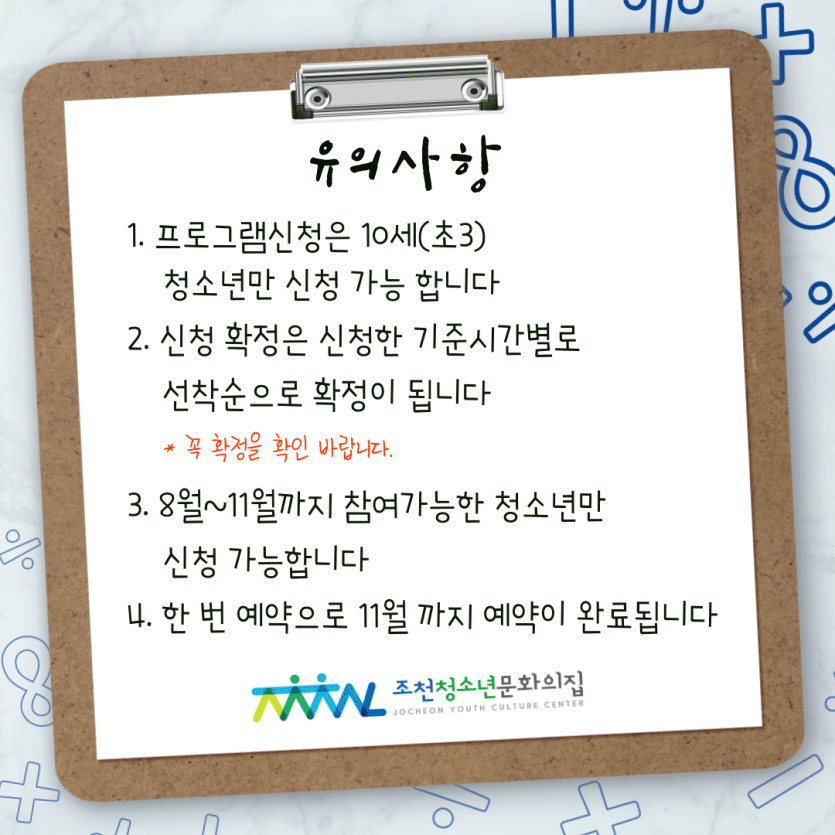 유의사항
1. 프로그램신청은 10세(초3)
청소년만 신청 가능 합니다
2. 신청 확정은 신청한 기준시간별로
선착순으로 확정이 됩니다
* 꼭 확정을 확인 바랍니다.
3. 8월~11월까지 참여가능한 청소년만
신청 가능합니다
4. 한 번 예약으로 11월 까지 예약이 완료됩니다
조천청소년문화의집
JOCHEON YOUTH CULTURE CENTER